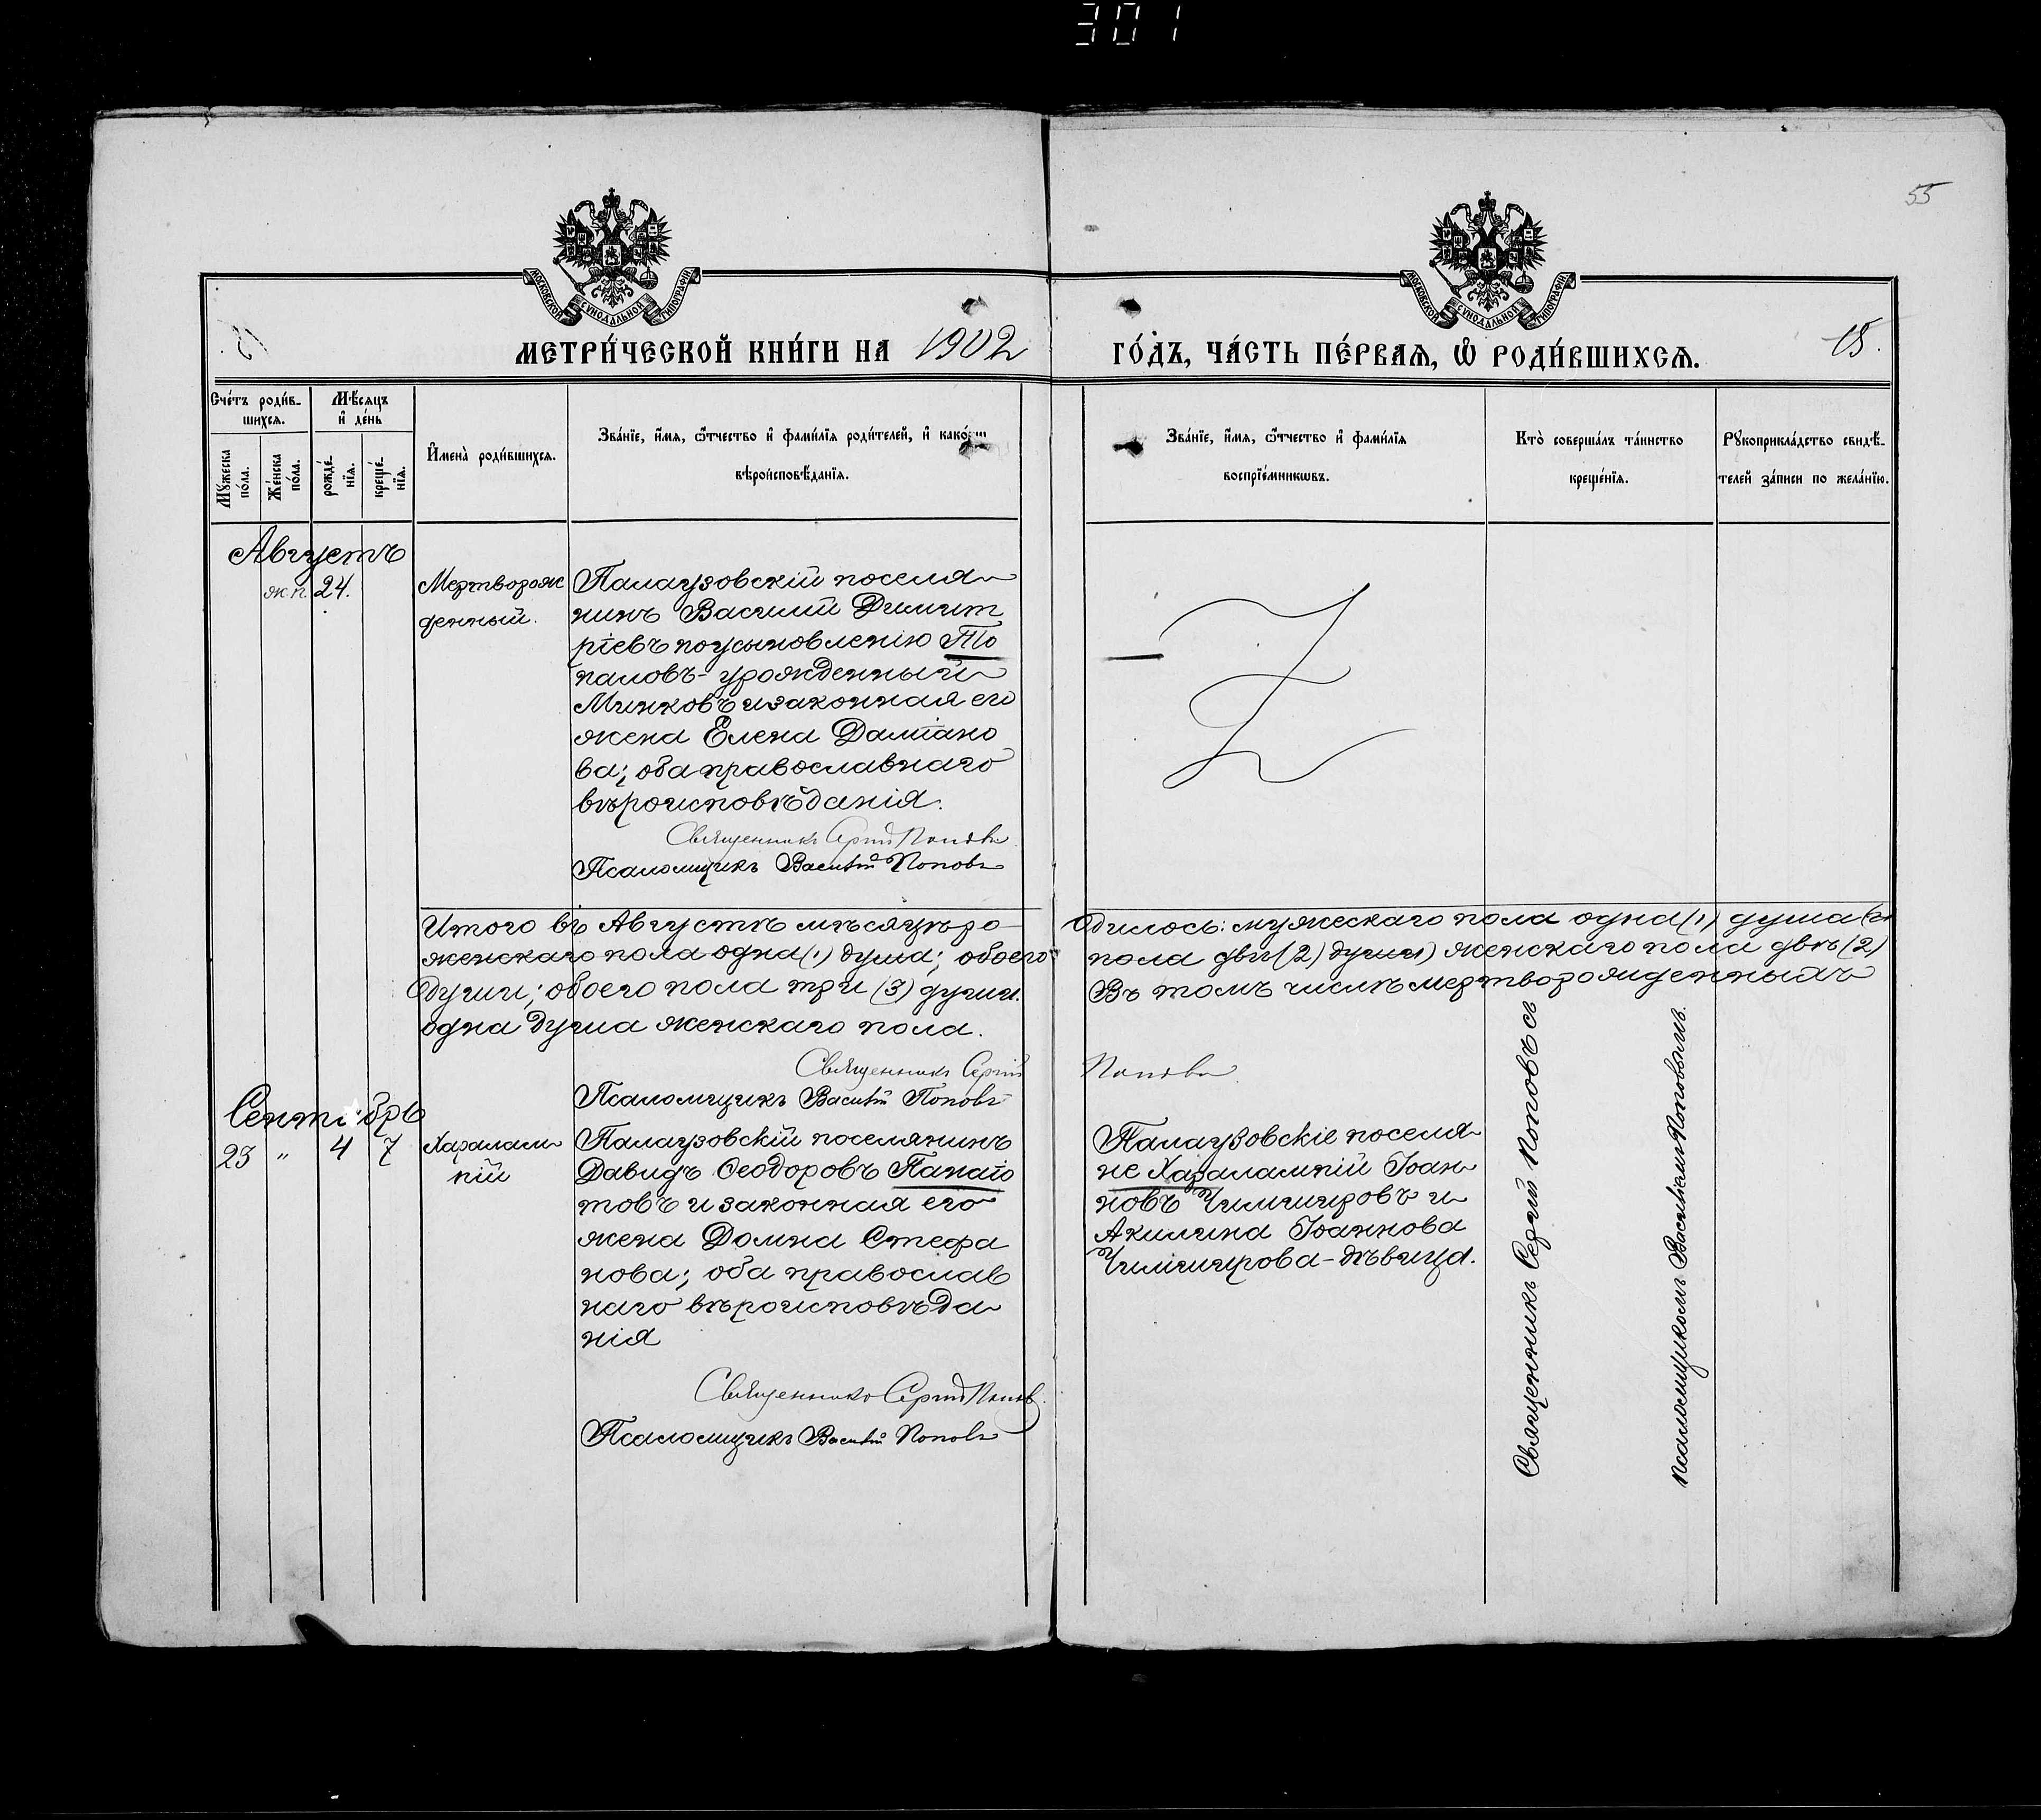 301
55
МОСКОВСКОЙ СУНОДАЛЬНОЙ ТИПОГРАФІИ
МОСКОВСКОЙ СУНОДАЛЬНОЙ ТИПОГРАФІИ
МЕТРИ́ЧЕСКОЙ КНИ́ГИ НА 1902
ГО́ДЪ, ЧА́СТЬ ПЕ́РВАѦ, Ѡ РОДИ́ВШИХСѦ.
15.
Сче́тъ роди́в-
шихсѧ.
Мѣ́сѧцъ
и҆ де́нь
Мꙋ́жеска
по́ла.
Же́нска
по́ла.
рожде́-
нїѧ.
креще́-
нїѧ.
И҆мена̀ роди́вшихсѧ.
Зва́нїе, и҆́мѧ, ѻ҆́тчество и҆ фами́лїѧ роди́телей, и҆
вѣроисповѣ́данїѧ.
Зва́нїе, и҆́мѧ, ѻ҆́тчество и҆ фами́лїѧ
воспрїе́мникѡвъ.
Кто̀ соверша́лъ та́инство
креще́нїѧ.
Рꙋкоприкла́дство свидѣ́-
телей за́писи по жела́нїю.
Августъ
ж.п. 24.
Мертворож
денный.
Палаузовскій поселя-
нинъ Василий Димит
ріевъ по усыновленію То
паловъ - урожденный
Минковъ и законная его
жена Елена Даміано
ва; оба православнаго
вѣроисповѣданія.
Священникъ Сергій Поповъ
Псаломщикъ Василій Поповъ
Итого въ Августѣ мѣсяцѣ ро-
одилось: мужескаго пола одна (1) душа
женскаго пола одна (1) душа; обоего
пола двѣ (2) души) женскаго пола двѣ (2)
души; обоего пола три (3) души.
Въ томъ числѣ мертворожденныхъ
одна душа женскаго пола.
Священникъ Сергій
Поповъ.
Псаломщикъ Василій Поповъ
Сентябрь
23 " 4 7
Харалам-
пій
Палаузовскій поселянинъ
Давидъ Ѳеодоровъ Панаіо
товъ и законная его
жена Домна Стефа
нова; оба православ
наго вѣроисповѣда-
нія
Священникъ Сергій Поповъ.
Псаломщикъ Василій Поповъ
Палаузовскіе поселя-
не Харалампій Іоан-
новъ Чимшировъ и
Акилина Іоаннова
Чимширова - дѣвица.
Священникъ Сергій Поповъ съ
псаломщикомъ Василіемъ Поповымъ.